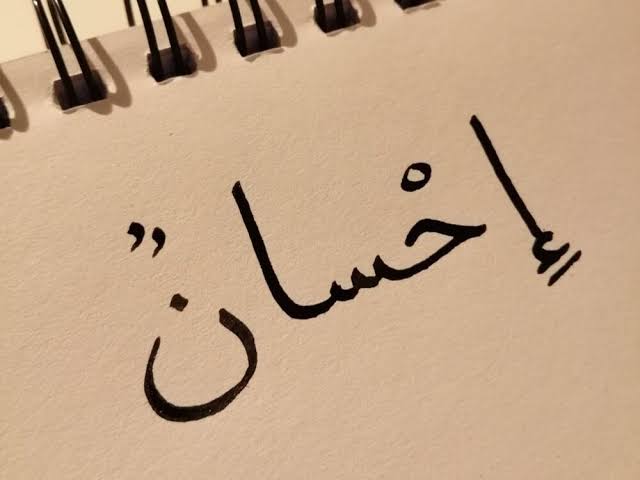 إِحْسانٌ